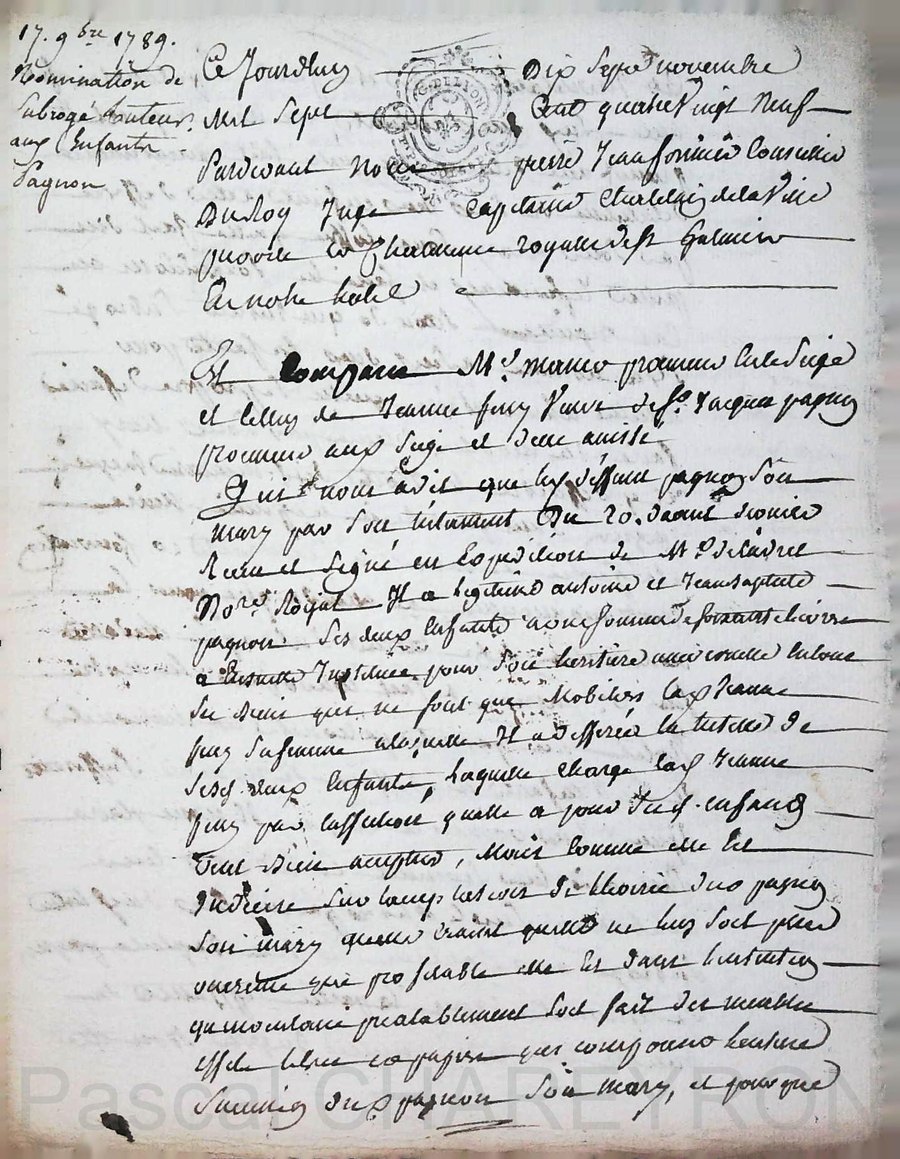 17. 9bre 1789.
Nomination de
subrogé tuteur
aux Enfants
Pagnon
Ce Jourdhuy Dix Sept novembre
Mil Sept Cent quatre Vingt Neuf
Pardevant Nous pierre Jean Conseiller
Du Roy Juge Capitaine Chatelain de la Ville
prevoté et Chatelenie royalle de St Galmier
En notre hotel
Est Comparu Me procureur en ce Siege
et Celluy de Jeanne Veuve de Sr Jacques pagnon
procureur aux Siege et de assisté
Qui nous a dit que led. deffunt pagnon Son
mary par Son testament Du 20. dernier
Recu et Signé en Expedition de Me
Nore Royal Il a legitimé antoine et Jean baptiste
pagnon Ses deux Enfants a une somme de soixante livres
a Ensuitte Instituée pour Son heritiere universelle en tous
Ses biens qui ne sont que Mobiliers lad. Jeanne
sa femme a laquelle Il a defferée la tutelle de
Sesd. deux Enfants, laquelle Charge lad. Jeanne
par l'affection quelle a pour Sesd. enfants
Veut bien accepter, Mais Comme elle Est
Indecise Sur l'acceptation de l'hoirie dud. pagnon
Son mary quelle craint quelle ne luy Soit plus
onereuse que profitable elle Est dans l'intention
qu'inventaire prealablement Soit fait des meubles
effets titres et papiers qui composent l'entiere
Succession dud. pagnon Son mary, et pour que
Pascal CHAREYRON